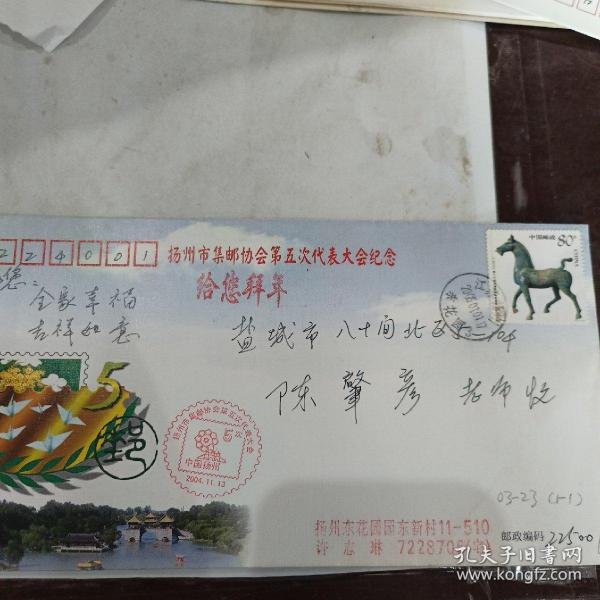 224001
扬州市集邮协会第五次代表大会纪念
给您拜年
您：
全家幸福
吉祥如意
中国邮政
80分
CHINA
江苏
东花园
盐城市八十间北区5-104
陈肇彦 老师收
5
邮
扬州市集邮协会第五次代表大会
中国扬州
2004.11.13
03-23(5-1)
扬州东花园园东新村11-510
许志琳 7228706(宅)
邮政编码 22500
孔夫子旧书网
www.kongfz.com